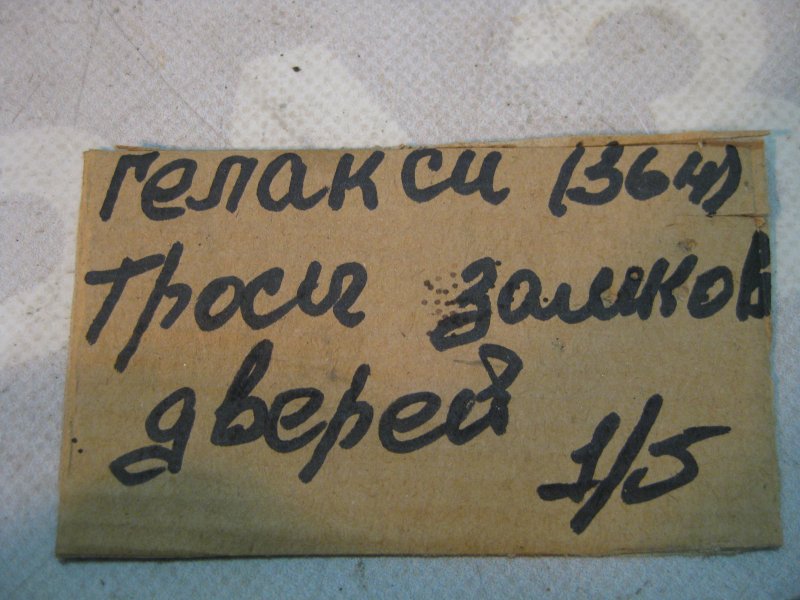 Гелакси (364)
Тросы замков
дверей
1/5